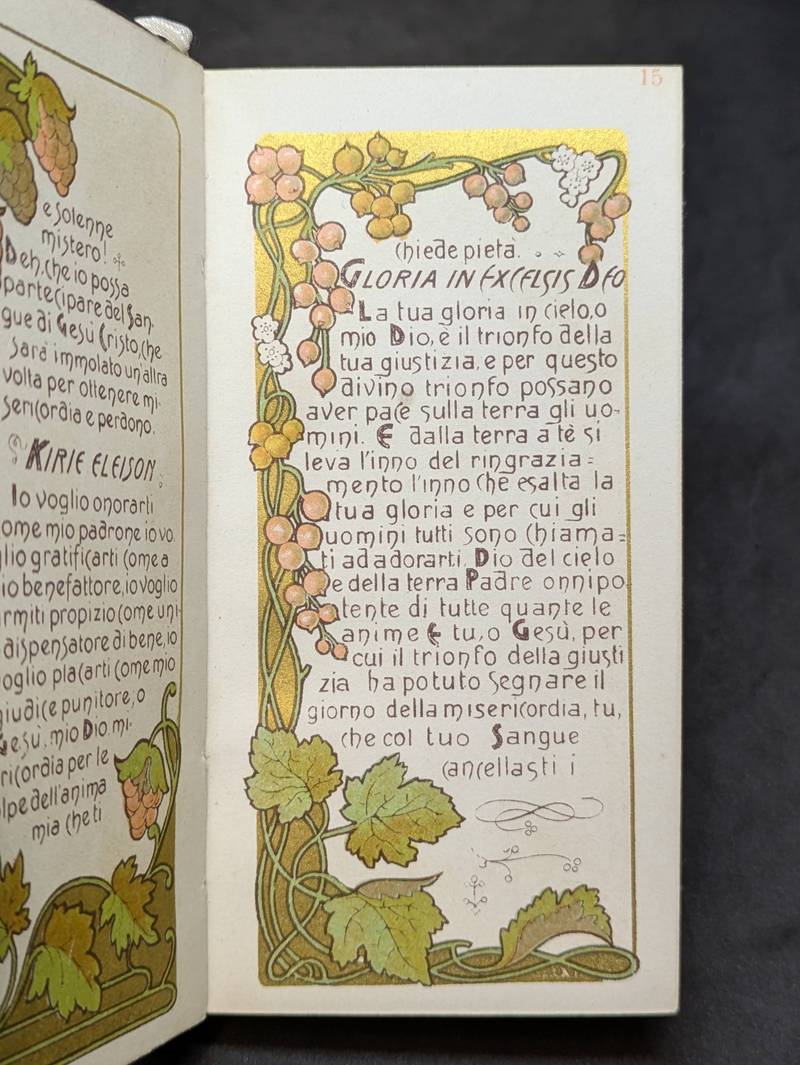 e solenne
mistero!
Deh, che io possa
partecipare del San-
gue di Gesù Cristo, che
sarà immolato un'altra
volta per ottenere mi-
sericordia e perdono.
KIRIE ELEISON
Io voglio onorarti
ome mio padrone io vo.
lio gratificarti come a
io benefattore, io voglio
rmiti propizio come uni
dispensatore di bene, io
oglio placarti come mio
giudice punitore, o
Gesù, mio Dio, mi-
ricordia per le
lpe dell'anima
mia che ti
15
chiede pietà.
GLORIA IN EXCELSIS DEO
La tua gloria in cielo, o
mio Dio, è il trionfo della
tua giustizia, e per questo
divino trionfo possano
aver pace sulla terra gli uo-
mini. E dalla terra a tè si
leva l'inno del ringrazia=
mento l'inno che esalta la
tua gloria e per cui gli
uomini tutti sono chiama=
ti ad adorarti, Dio del cielo
e della terra Padre onnipo
tente di tutte quante le
anime E tu, o Gesù, per
cui il trionfo della giusti
zia ha potuto segnare il
giorno della misericordia, tu,
che col tuo Sangue
cancellasti i